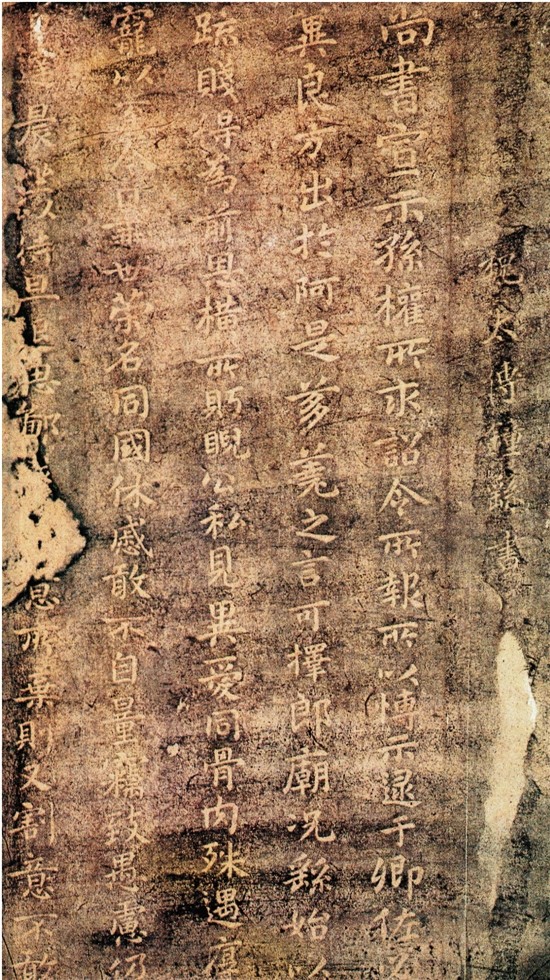 魏太傅鍾繇書
尚書宣示孫權所求詔令所報所以博示逮于卿佐
異良方出於阿是芻蕘之言可擇郎廟況繇始以
疏賤得為前恩橫所盻睨公私見異愛同骨肉殊遇
寵以至今日再世榮名同國休慼敢不自量竊致愚慮仍
達晨坐以待旦思鄙 意所棄則又割意不敢